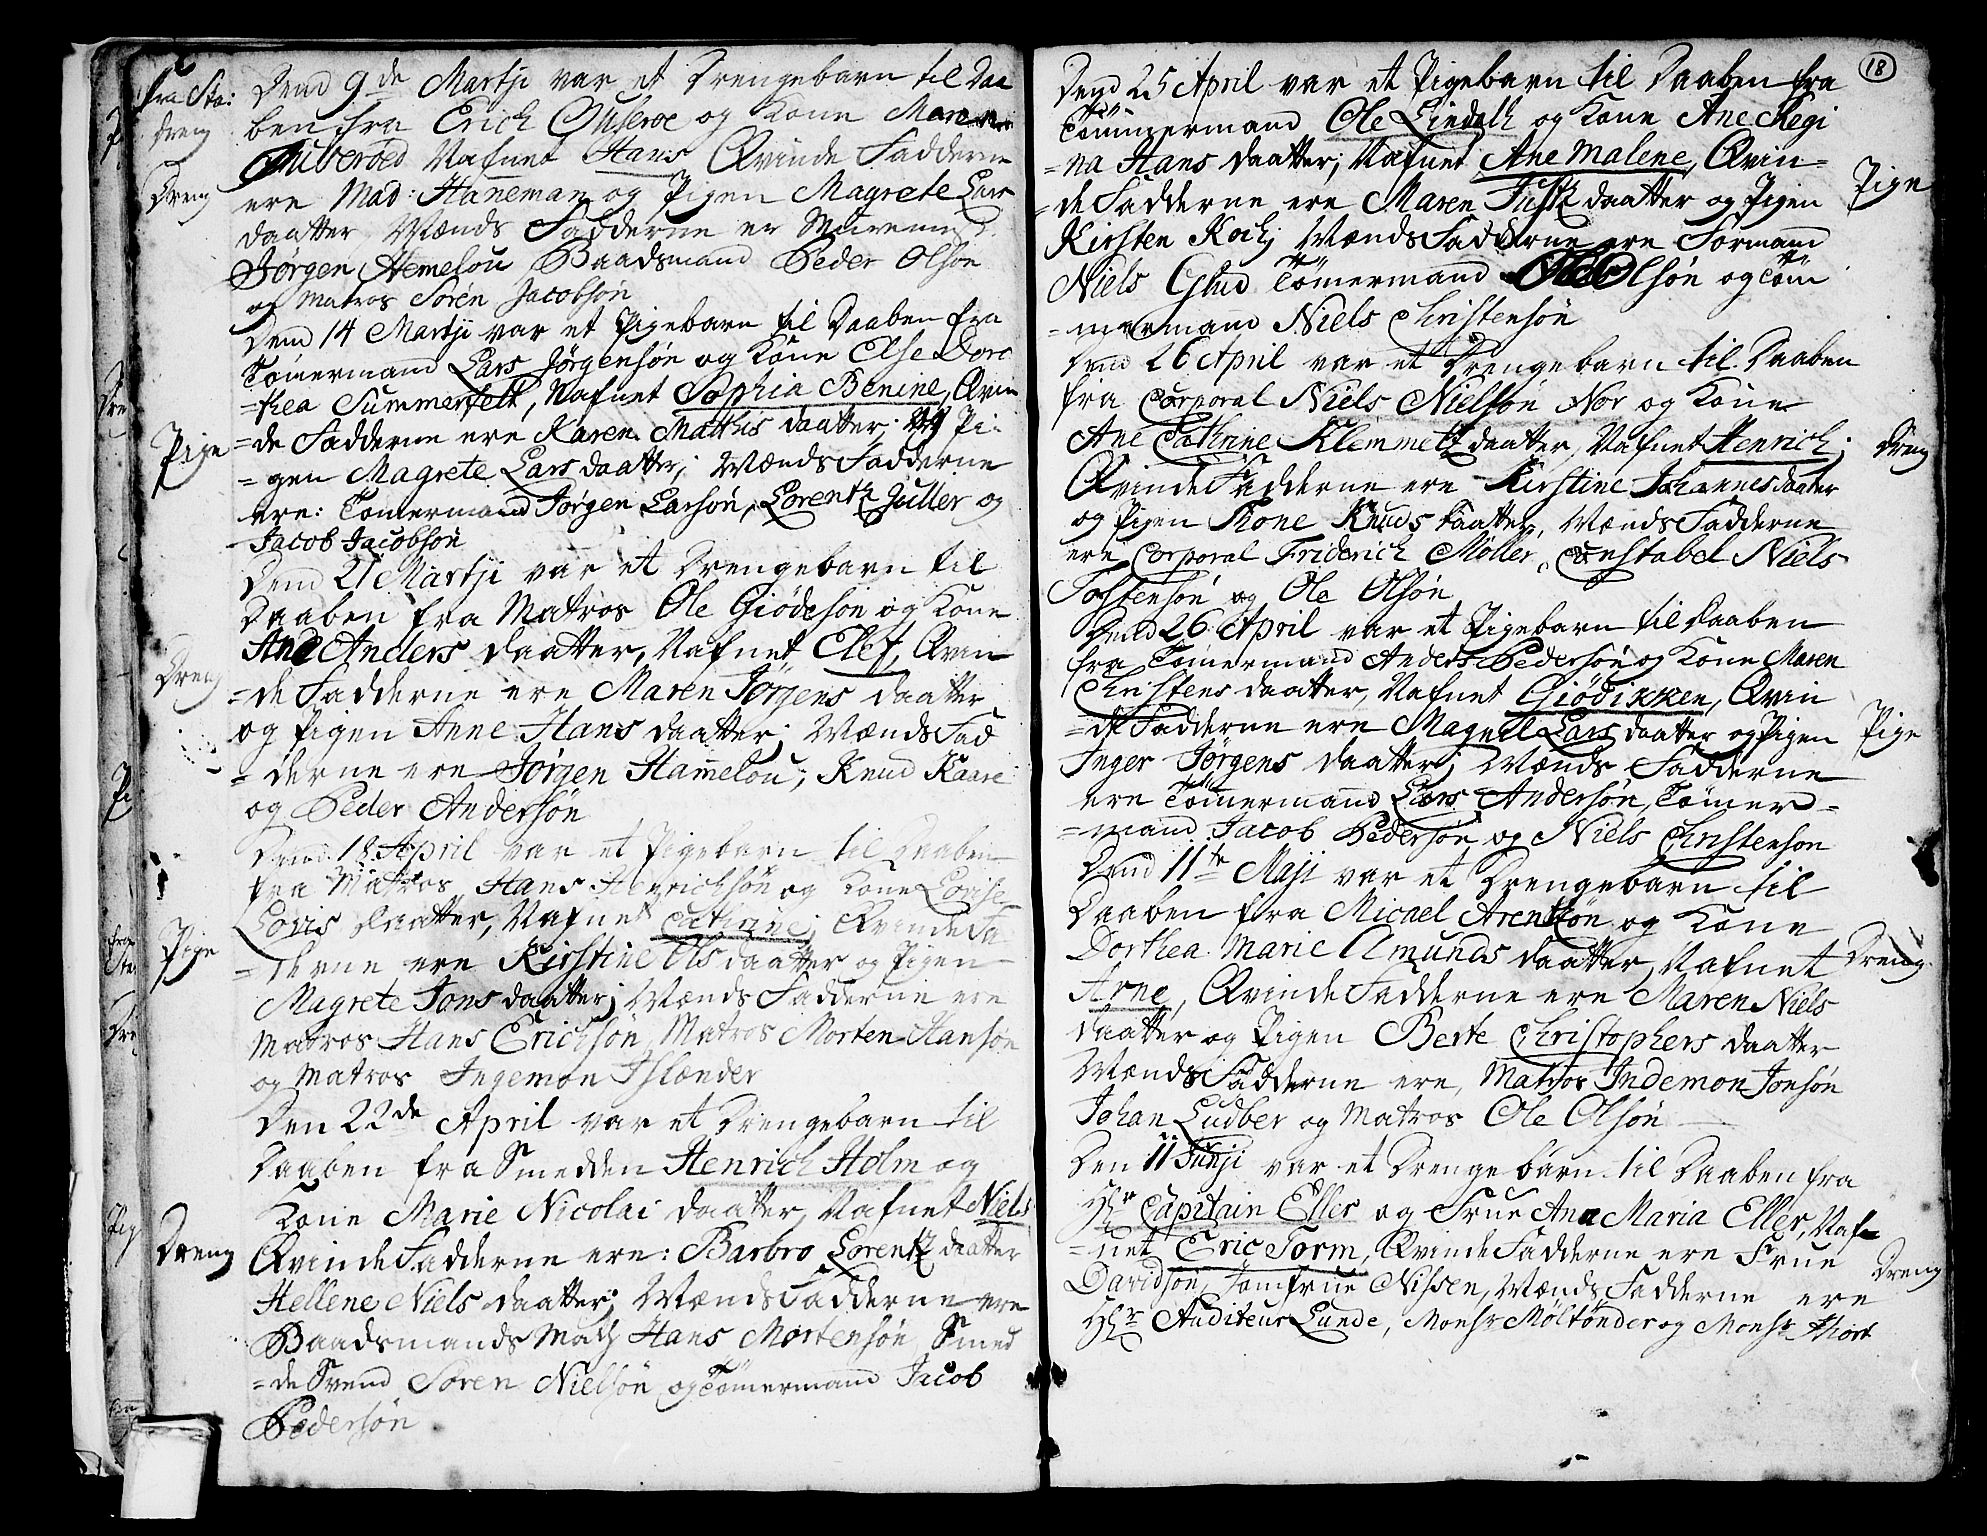 fra Sta:
Dreng
Dreng
Dend 9de Martji var et Drengebarn til Daa
ben fra Erich Guseroe og Kone Maren
Guseroed Nafnet Hans Qvinde Fadderne
ere Mad: Haneman og Pigen Magrete Lars
daatter Mænds Fadderne er Muremd.
Jørgen Hemelou Baadsmand Peder Olsøn
og Matros Søren Jacobsøn
Dend 14 Martji var et Pigebarn til Daaben fra
Tømermand Lars Jørgensøn og Kone Else Doro
=thea Summerfelt, Nafnet Sophia Benine, Qvin
Pige
=de Fadderne ere Karen Mathis daatter, Pi-
=gen Magrete Lars daatter; Mænds Fadderne
ere: Tømermand Jørgen Larsøn, Lorentz Juller og
Jacob Jacobsøn
Dend 21 Martji var et Drengebarn til
Daaben fra Matros Ole Giødesøn og Kone
Ane Anders daatter, Nafnet Elef, Qvin
Dreng
=de Fadderne ere Maren Jørgens daatter
og Pigen Anne Hans daatter; Mænds Fad
=derne ere Jørgen Hamelou; Knud Kaare
og Peder Andersøn
Dend 18 April var et Pigebarn til Daaben
fra Matros Hans Henrichsøn og Kone Lovise
Lovis daatter, Nafnet Cathrine; Qvinde Fa
Pige
=derne ere Kirstine Ols daatter og Pigen
Magrete Jons daatter; Mænds Fadderne ere
Matros Hans Erichsøn, Matros Morten Hansøn
og Matros Ingemon Islænder
Den 22de April var et Drengebarn til
Daaben fra Smedden Henrich Holm og
Kone Marie Nicolai daatter, Nafnet Niels
Dreng
Qvinde Fadderne ere: Barbro Lorentz daatter
Hellene Niels daatter; Mænds Fadderne ere
Baadsmands Math Hans Mortensøn, Smed
=de Svend Søren Nielsøn og Tømermand Jacob
Pedersøn
18
Dend 25 April var et Pigebarn til Daaben fra
Tømmermand Ole Lindalh og Kone Ane Regi
=na Hans daatter; Nafnet Ane Malene, Qvin=
Pige
=de Fadderne ere Maren Tusk daatter og Pigen
Kirsten Koch; Mænds Fadderne ere Formand
Niels Glud Tømermand Ole Olsøn og Tøm
=mermand Niels Christensøn
Dend 26 April var et Drengebarn til Daaben
fra Corporal Niels Nielsøn Nor og Kone
Ane Cathrine Klemmetz daatter, Nafnet Henrich;
Dreng
Qvinde Fadderne ere Kirstine Johannes daater
og Pigen Thone Knuds daatter, Mænds Fadderne
ere Corporal Friderich Møller, Constabel Niels
Tostensøn og Ole Olsøn
Dend 26 April var et Pigebarn til Daaben
fra Tømermand Anders Pedersøn og Kone Maren
Christens daatter, Nafnet Giødikken, Qvin
=de Fadderne ere Magnil Lars daatter og Pigen
Pige
Inger Jørgens daatter; Mænds Fadderne
ere Tømmermand Lars Andersøn, Tømer=
=mand Jacob Pedersøn og Niels Christenson
Dend 11te Maji var et Drengebarn til
Daaben fra Micael Arentzøn og Kone
Dorthea Marie Amunds daatter, Nafnet
Dreng
Arne, Qvinde Fadderne ere Maren Niels
daatter og Pigen Berte Christophers daatter
Mænds Fadderne ere, Matros Indemon Jonsøn
Johan Ludber og Matros Ole Olsøn
Den 11 Junji var et Drenge barn til Daaben fra
Hr Capitain Eller og Frue Ana Maria Eller, Naf=
=net Eric Torm, Qvinde Fadderne ere Frue
Dreng
Davidson, Jomfrue Nissen, Mænds Fadderne ere
Hr Auditeur Lunde, Monsr Møltønder og Monsr Thort